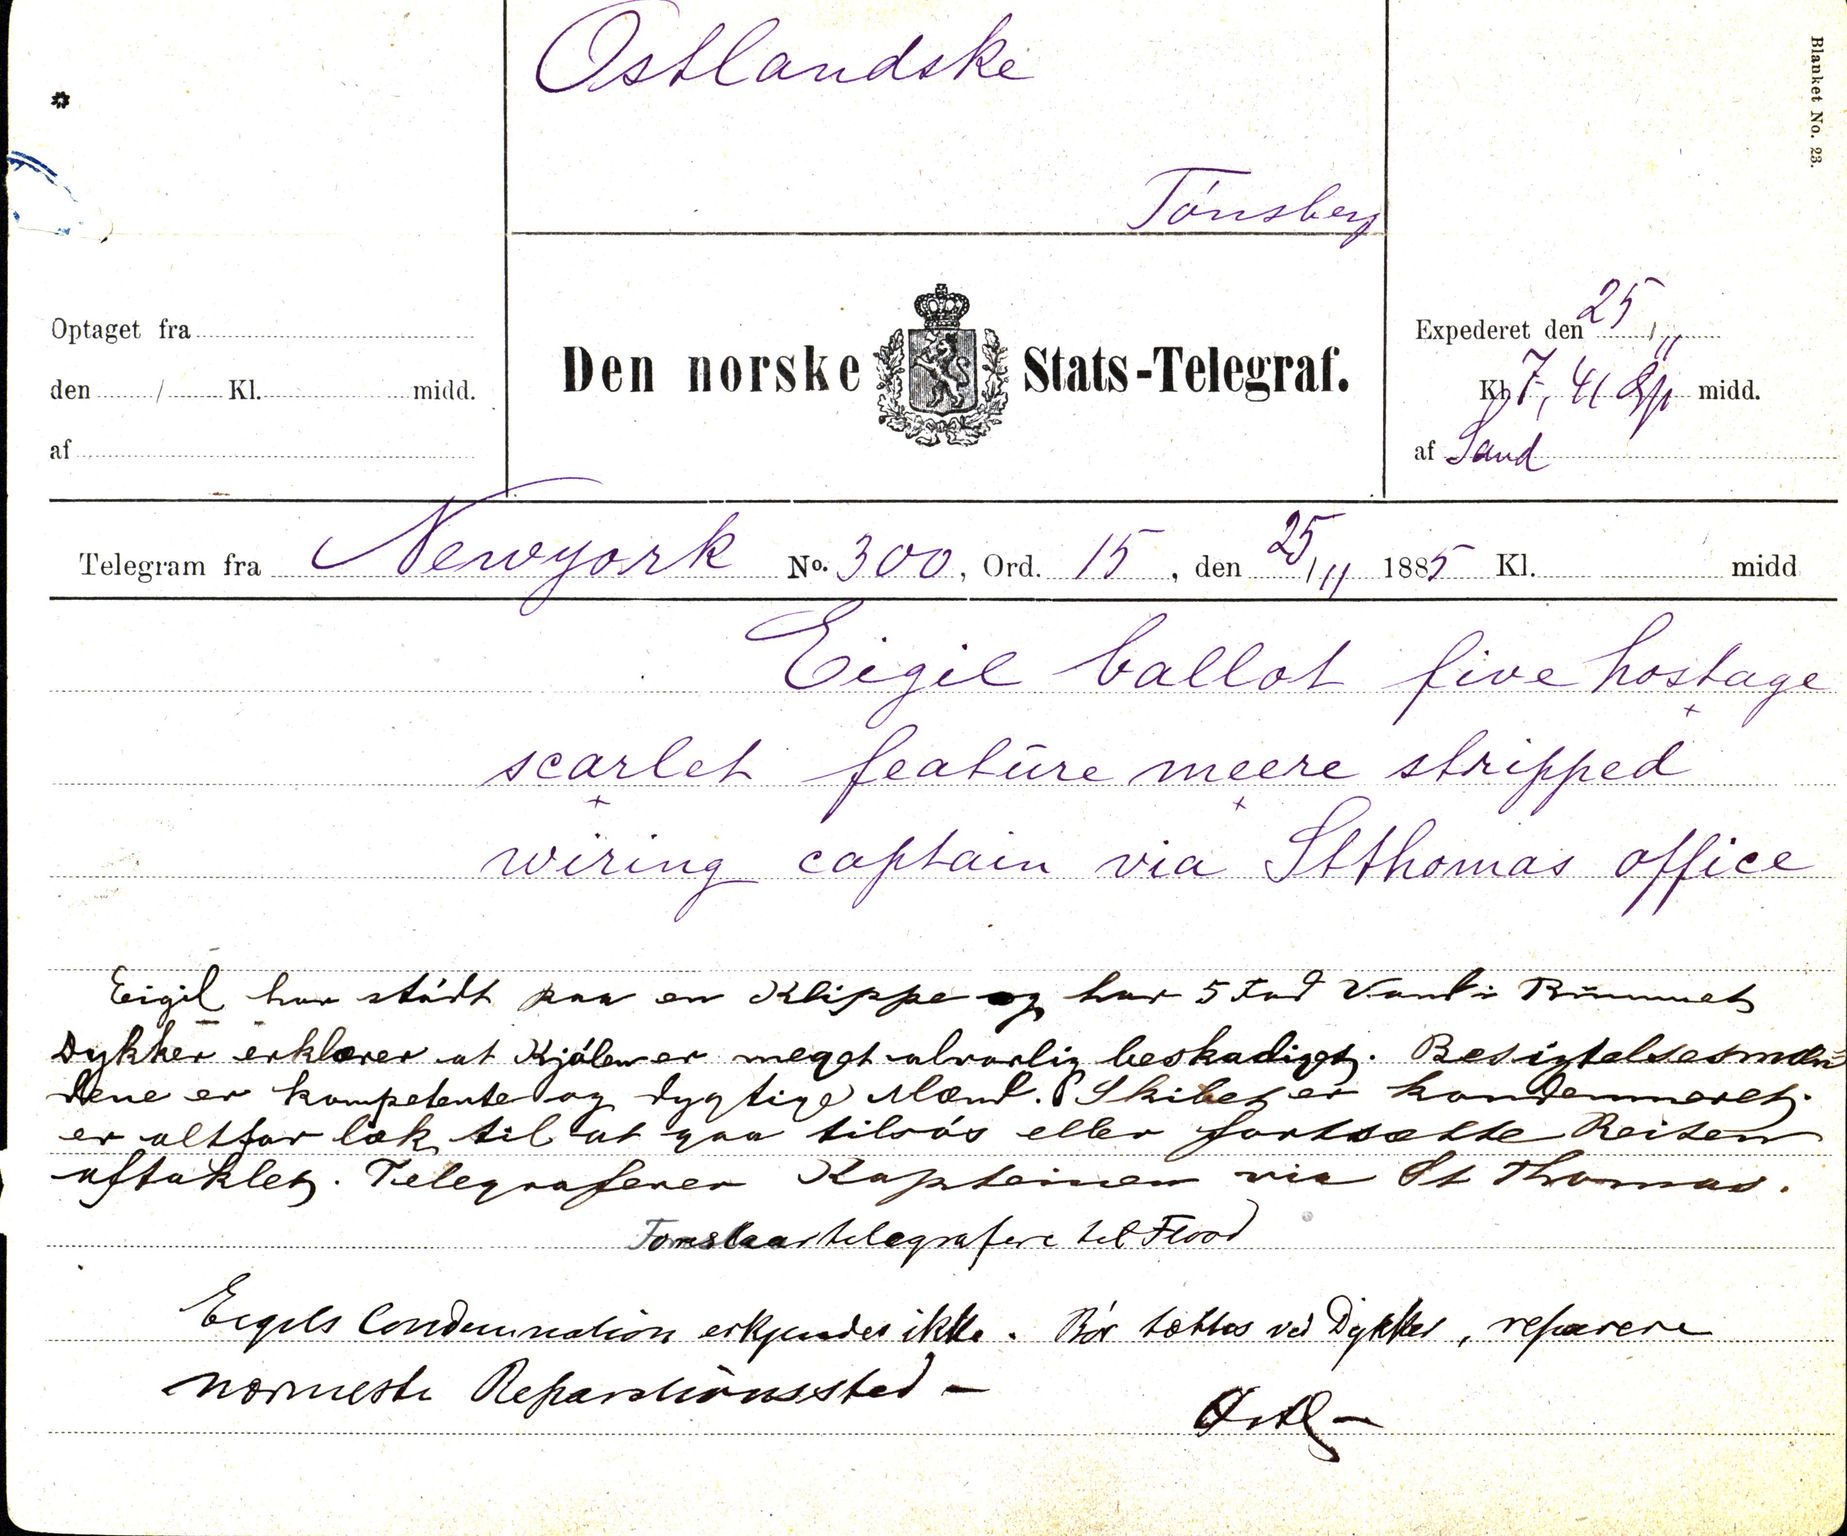 Ostlandske
Tönsberg
Blanket No. 23.
Optaget fra
den / Kl. midd.
af
Den norske Stats-Telegraf.
Expederet den 25/11
Kl. 7,41 midd.
af Sand
Telegram fra Newyork No. 300, Ord. 15, den 25/11 1885 Kl. midd
Eigil ballot five hostage
scarlet feature meere stripped
wiring captain via Stthomas office
Eigil har stødt paa en Klippe og har 5 Fod Vand i Rummet
Dykker erklærer at Kjølen er meget alvorlig beskadiget. Besigtelsesmæn-
dene er kompetente og dygtige Mænd. Skibet er kondemneret.
er altfor læk til at gaa tilsøs eller fortsætte Reisen
aftaklet. Telegraferer Kapteinen via St Thomas.
telegrafere til Flood
Eigils Condemnation erkjendes ikke. Bør tættes ved Dykker, reparere
nærmeste Reparationssted –